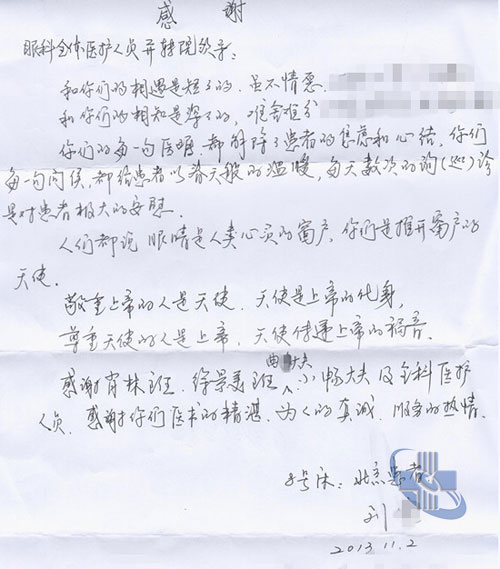 感 谢
眼科全体医护人员并转院领导:
和你们的相遇是短暂的,虽不情愿.
和你们的相知是深刻的,难舍难分
你们的每一句医嘱都解除了患者的焦虑和心结,你们
每一句问侯,都给患者以春天般的温暖,每天数次的询(巡)诊
是对患者极大的安慰.
人们都说眼睛是人类心灵的窗户,你们是推开窗户的
天使.
敬重上帝的人是天使,天使是上帝的化身,
尊重天使的人是上帝,天使传递上帝的福音.
曲 大夫
感谢肖林班,徐景美班、小畅大夫及全科医护
人员,感谢你们医术的精湛,为人的真诚,服务的热情.
号床:北京患者
刘
2013.11.2